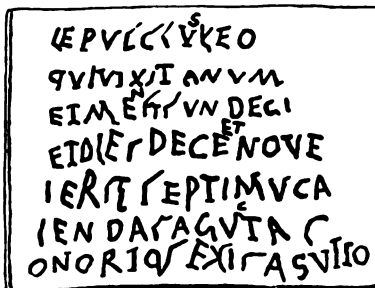 LEPVSCLVS LEO
QVI VIXIT ANVM
ET MENSIS VN DECI
ET DIES DECE ET NOVE
PERIT SEPTIMV CA
LENDAS AGVSTAS
ONORIO SEXIS AGVSTO